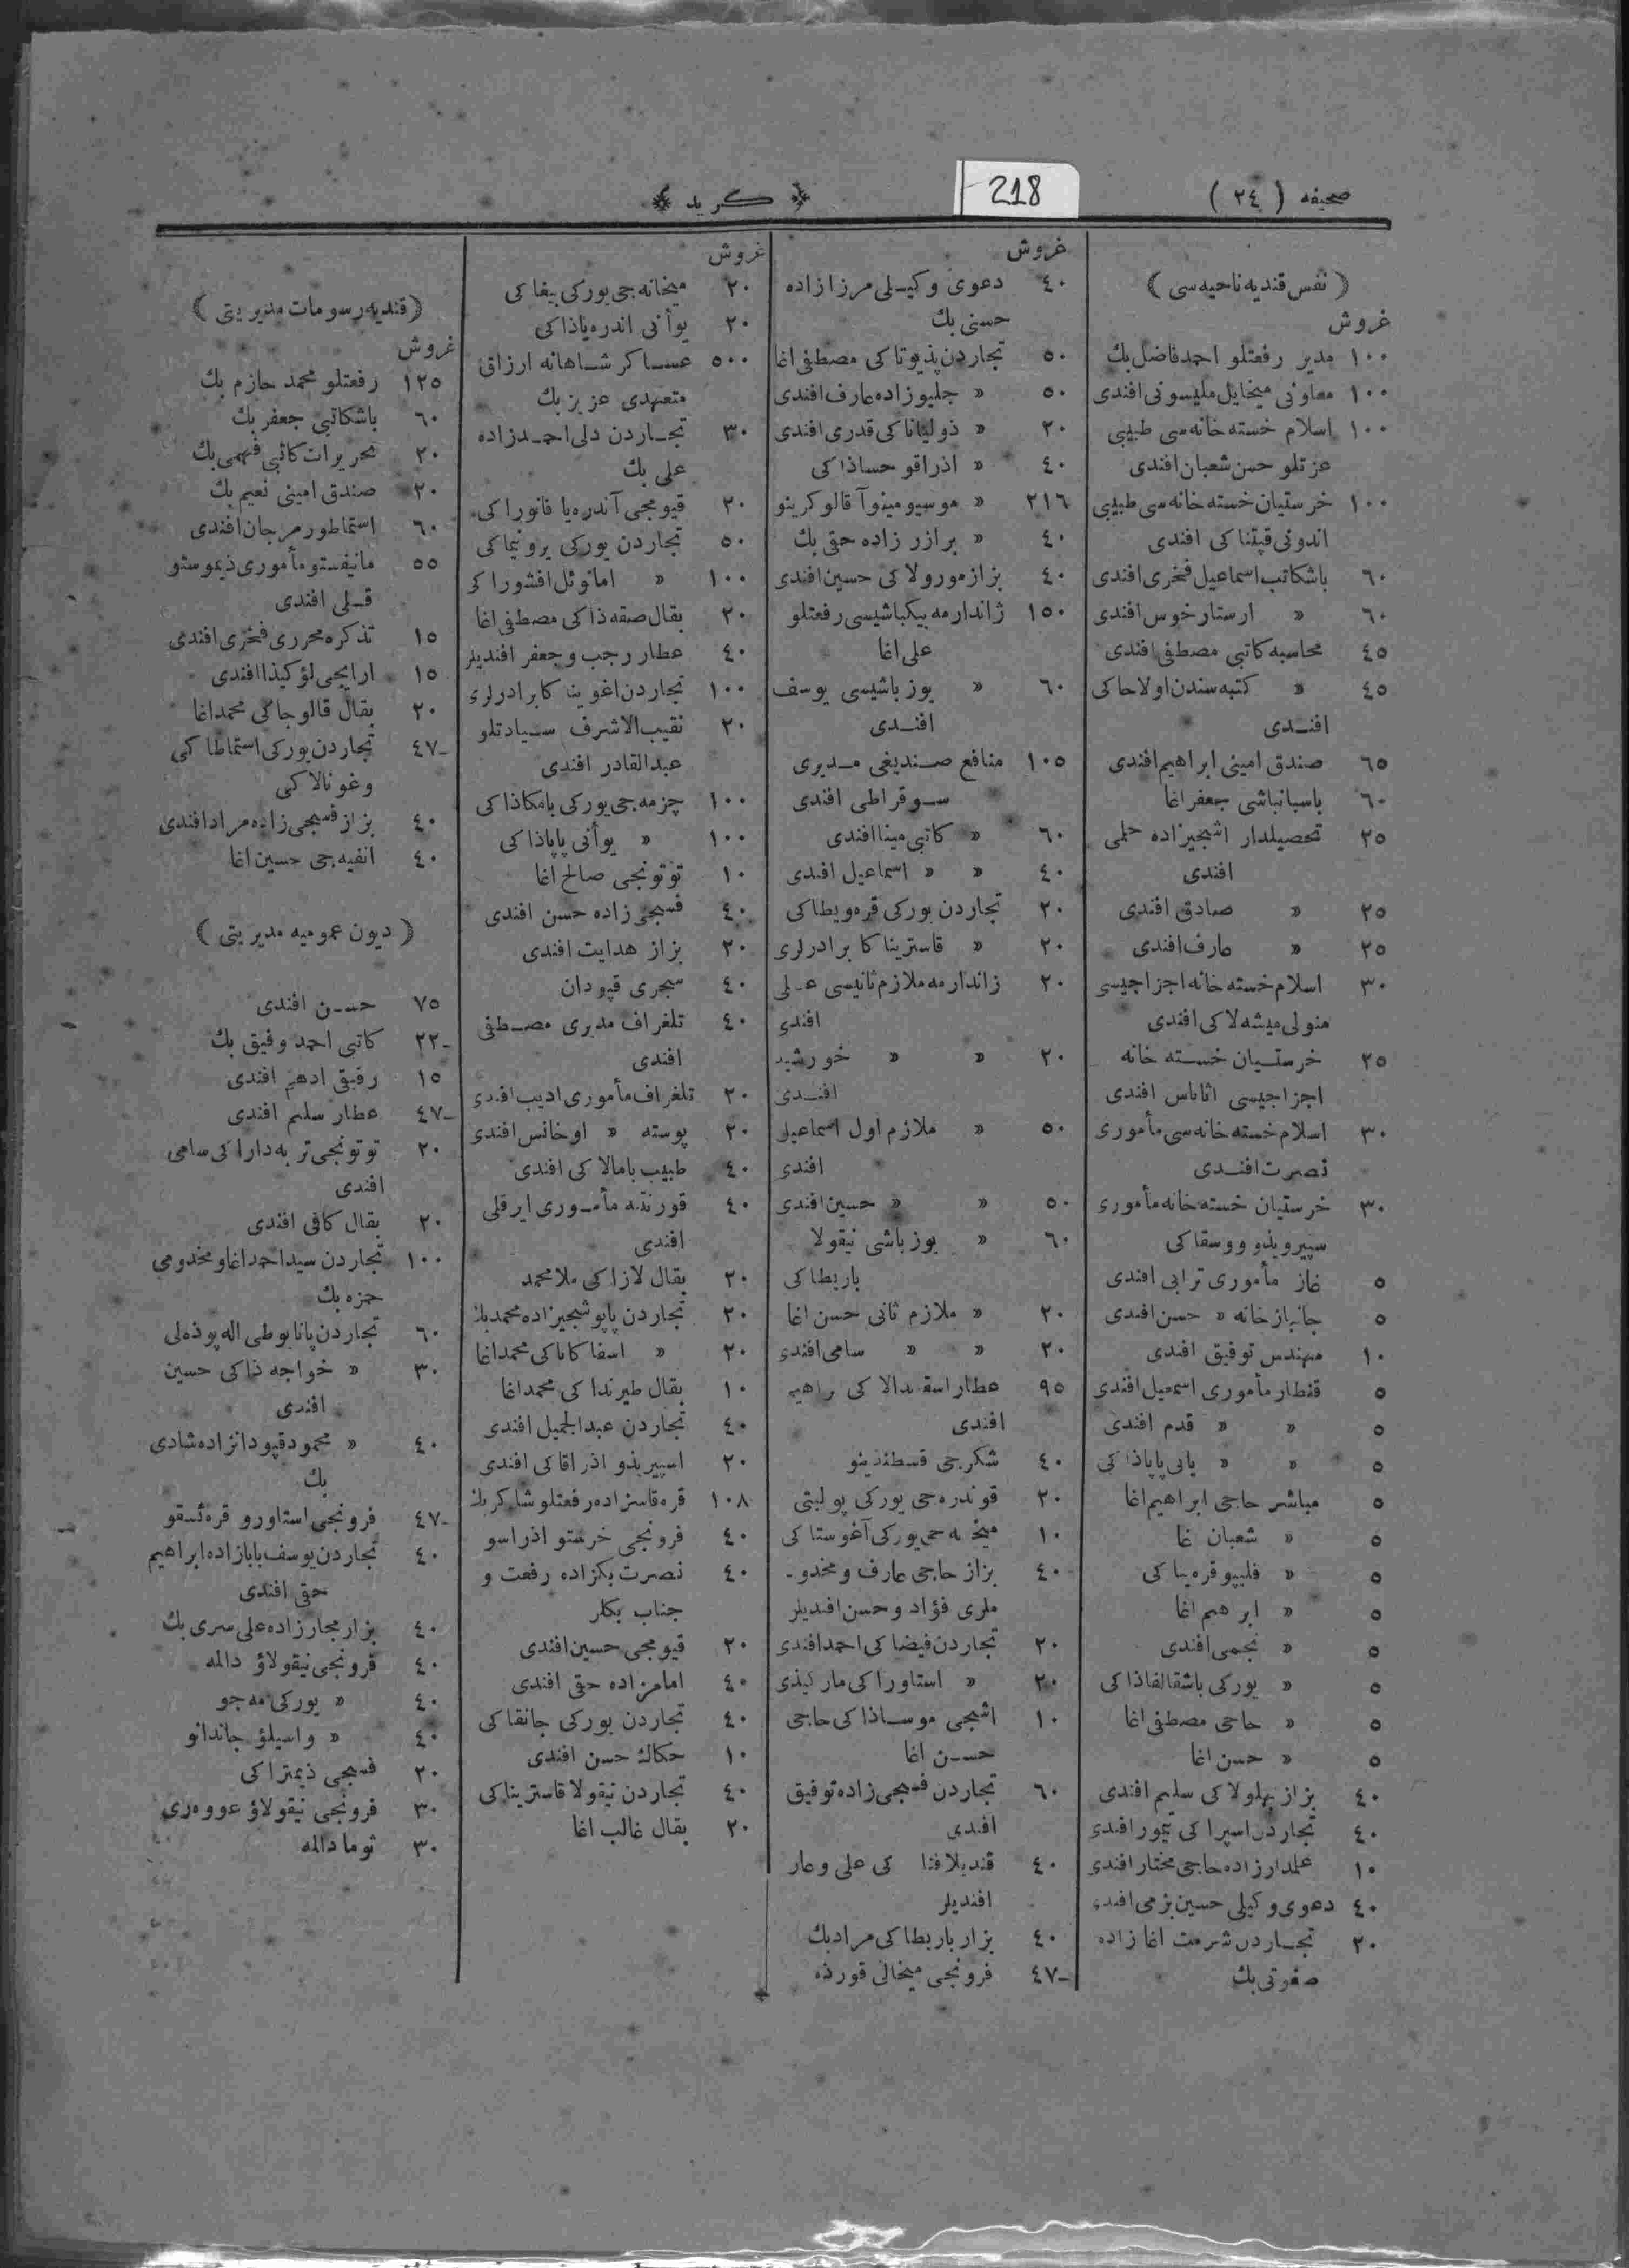 صحیفه ( ٢٤ )
218
﴿ كرید ﴾
﴿ نفس قندیه ناحیه سی ﴾
غروش
١٠٠ مدیر رفعتلو احمد فاضل بك
١٠٠ معاونی میخایل ملیسونی افندی
١٠٠ اسلام خسته خانه سی طبیبی
عزتلو حسن شعبان افندی
١٠٠ خرستیان خسته خانه سی طبیبی
اندونی قپتنا كی افندی
٦٠ باشكاتب اسماعیل فخری افندی
٦٠ » ارستارخوس افندی
٤٥ محاسبه كاتبی مصطفی افندی
٤٥ » كتبه سندن اولاحاكی
افندی
٦٥ صندق امینی ابراهیم افندی
٦٠ پاسبانباشی جعفر اغا
٢٥ تحصیلدار اشجیزاده حلمی
افندی
٢٥ » صادق افندی
٢٥ » عارف افندی
٣٠ اسلام خسته خانه اجزاجیسی
منولی میشه لاكی افندی
٢٥ خرستیان خسته خانه
اجزاجیسی اثاناس افندی
٣٠ اسلام خسته خانه سی مأموری
نصرت افندی
٣٠ خرستیان خسته خانه مأموری
سپیرویذو ووسقاكی
٥ غاز مأموری ترابی افندی
٥ جانبازخانه » حسن افندی
١٠ مهندس توفیق افندی
٥ قنطار مأموری اسمعیل افندی
٥ » » قدم افندی
٥ » » یانی پاپاذاكی
٥ مباشر حاجی ابراهیم اغا
٥ » شعبان غا
٥ » فلیپو قره یناكی
٥ » ابرهیم اغا
٥ » نجمی افندی
٥ » یوركی باشقالفاذاكی
٥ » حاجی مصطفی اغا
٥ » حسن اغا
٤٠ بزاز بهلولاكی سلیم افندی
٤٠ تجاردن اسپراكی تیمور افندی
١٠ علمدارزاده حاجی مختار افندی
٤٠ دعوی وكیلی حسین بزمی افندی
٢٠ تجاردن شرمت اغا زاده
صفوتی بك
غروش
٤٠ دعوی وكیلی مرزا زاده
حسنی بك
٥٠ تجاردن پذیوتاكی مصطفی اغا
٥٠ » جلیوزاده عارف افندی
٢٠ » ذولیاناكی قدری افندی
٤٠ » اذراقو حساذاكی
٢١٦ » موسیو مینوآ قالوكرینو
٤٠ » برازر زاده حقی بك
٤٠ بزاز مورولاكی حسین افندی
١٥٠ ژاندارمه بیكباشیسی رفعتلو
علی اغا
٦٠ » یوزباشیسی یوسف
افندی
١٠٥ منافع صندیغی مدیری
سوقراطی افندی
٦٠ » كاتبی مینا افندی
٤٠ » » اسماعیل افندی
٢٠ تجاردن یوركی قره ویطاكی
٢٠ » قاستریناكا برادرلری
٢٠ ژاندارمه ملازم ثانیسی علی
افندی
٢٠ » » خورشید
افندی
٥٠ » ملازم اول اسماعیل
افندی
٥٠ » » حسین افندی
٦٠ » یوزباشی نیقولا
باربطاكی
٢٠ » ملازم ثانی حسن اغا
٢٠ » » سامی افندی
٩٥ عطار اسقندالاكی راهیم
افندی
٤٠ شكرجی قسطنذینو
٢٠ قوندره جی یوركی پولیتی
١٠ میخانه جی یوركی آغوستاكی
٤٠ بزاز حاجی عارف ومخدو-
ملری فؤاد وحسن افندیلر
٢٠ تجاردن فیضاكی احمد افندی
٢٠ » استاوراكی ماركیذی
١٠ اشجی موساذاكی حاجی
حسن اغا
٦٠ تجاردن فسجی زاده توفیق
افندی
٤٠ قندیلافتا كی علی وعار
افندیلر
٤٠ بزار باربطاكی مراد بك
-٤٧ فرونجی میخالی قورذه
غروش
٢٠ میخانه جی یوركی پیغاكی
٢٠ یوأنی اندره یاذاكی
٥٠٠ عساكر شاهانه ارزاق
متعهدی عزیز بك
٣٠ تجاردن دلی احمدزاده
علی بك
٢٠ قیومجی آندره یا فانوراكی
٥٠ تجاردن یوركی یرونیماكی
١٠٠ » امانوئل افشوراكز
٢٠ بقال صقه ذاكی مصطفی اغا
٤٠ عطار رجب وجعفر افندیلر
١٠٠ تجاردن اغویناكا برادرلری
٢٠ نقیب الاشرف سیادتلو
عبدالقادر افندی
١٠٠ چزمه جی یوركی بامكاذاكی
١٠٠ » یوأنی پاپاذاكی
١٠ توتونجی صالح اغا
٤٠ فسجی زاده حسن افندی
٢٠ بزاز هدایت افندی
٤٠ سجری قپودان
٤٠ تلغراف مدیری مصطفی
افندی
٢٠ تلغراف مأموری ادیب افندی
٢٠ پوسته » اوخانس افندی
٤٠ طبیب بامالاكی افندی
٤٠ قورنتنه مأموری ایرقلی
افندی
٢٠ بقال لازاكی ملا محمد
٢٠ تجاردن پاپوشجیزاده محمد بك
٢٠ » اسفاكاناكی محمد اغا
١٠ بقال طیرنداكی محمد اغا
٤٠ تجاردن عبدالجمیل افندی
٢٠ اسپیریذو اذراقاكی افندی
١٠٨ قره قاسزاده رفعتلو شاكر بك
٤٠ فرونجی خرستو اذراسو
٤٠ نصرت بكزاده رفعت و
جناب بكلر
٢٠ قیومجی حسین افندی
٤٠ امامزاده حقی افندی
٤٠ تجاردن یوركی جانقاكی
١٠ حكاك حسن افندی
٤٠ تجاردن نیقولا قاستریناكی
٢٠ بقال غالب اغا
﴿ قندیه رسومات مدیریتی ﴾
غروش
١٢٥ رفعتلو محمد حازم بك
٦٠ باشكاتبی جعفر بك
٢٠ تحریرات كاتبی فهمی بك
٢٠ صندق امینی نعیم بك
٦٠ استماطور مرجان افندی
٥٥ مانیفستو مأموری ذیموستو
قلی افندی
١٥ تذكره محرری فخری افندی
١٥ ارایجی لؤكیذا افندی
٢٠ بقال قالوجاكی محمد اغا
-٤٧ تجاردن یوركی استماطاكی
وغونالاكی
٤٠ بزاز فسجی زاده مراد افندی
٤٠ انفیه جی حسین اغا
﴿ دیون عمومیه مدیریتی ﴾
٧٥ حسن افندی
-٢٢ كاتبی احمد وفیق بك
١٥ رفیقی ادهم افندی
-٤٧ عطار سلیم افندی
٢٠ توتونجی تربه داراكی سامی
افندی
٢٠ بقال كافی افندی
١٠٠ تجاردن سید احمد اغا ومخدومی
حمزه بك
٦٠ تجاردن پانایوطی اله پوذه لی
٣٠ » خواجه ذاكی حسین
افندی
٤٠ » محمود قپودانزاده شادی
بك
-٤٧ فرونجی استاورو قره ئسقو
٤٠ تجاردن یوسف بابازاده ابراهیم
حقی افندی
٤٠ بزار مجارزاده علی سری بك
٤٠ فرونجی نیقولاؤ دالمه
٤٠ » یوركی مه جو
٤٠ » واسیلؤ جاندانو
٢٠ فسجی ذیمتراكی
٣٠ فرونجی نیقولاؤ عووه ری
٣٠ ثوما دالمه